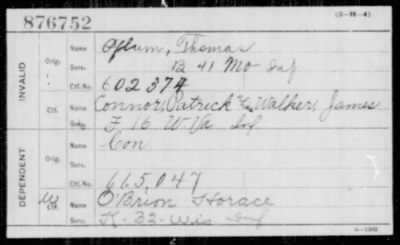 876752
(3—H—4)
INVALID
DEPENDENT
Orig. Name Pflum, Thomas
Serv. B 41 Mo Inf
Ctf. No. 602374
Ctf. Name Connor, Patrick Walker, James
Serv. F 16 W. Va Inf
Orig. Name Con
Serv.
Ctf. No. 665,047
W Ctf. Name O'Brien Horace
Serv. K-32-Wis Inf